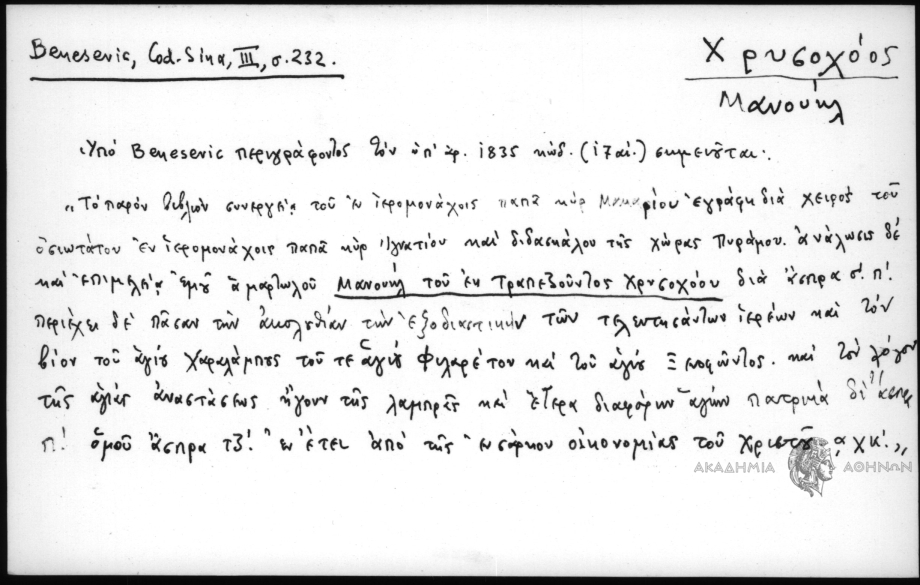 Benesevic, Cod. Sina, III, σ. 232.
Χρυσοχόος
Μανουήλ
Ὑπό Benesevic περιγράφοντος τόν ὑπ' ἀρ. 1835 κώδ. (17 αἰ.) σημειοῦται:
„Τό παρόν βιβλίον συνεργείᾳ τοῦ ἐν ἱερομονάχοις παπᾶ κύρ Μακαρίου ἐγράφη διά χειρός τοῦ
ὁσιωτάτου ἐν ἱερομονάχοις παπᾶ κύρ Ἰγνατίου καί διδασκάλου τῆς χώρας Πυράμου. ἀνάλωσις δέ
καί ἐπιμελείᾳ ἐμοῦ ἁμαρτωλοῦ Μανουήλ τοῦ ἐκ Τραπεζοῦντος Χρυσοχόου διά ἄσπρα σ'. π'.
περιέχει δέ πᾶσαν τήν ἀκολυθίαν τήν ἐξοδιαστικήν τῶν τελευτησάντων ἱερέων καί τόν
βίον τοῦ ἁγίου Χαραλάμπους τοῦ τε ἁγίου Φιλαρέτου καί τοῦ ἁγίου Ξενοφῶντος. καί τόν λόγον
τῆς ἁγίας ἀναστάσεως ἤγουν τῆς λαμπρᾶς καί ἕτερα διαφόρων ἁγίων πατρικά δι' ἄσπρα
π'. ὁμοῦ ἄσπρα τξ'. ἐν ἔτει ἀπό τῆς ἐνσάρκου οἰκονομίας τοῦ Χριστοῦ ͵αχκ'.„
ΑΚΑΔΗΜΙΑ ΑΘΗΝΩΝ